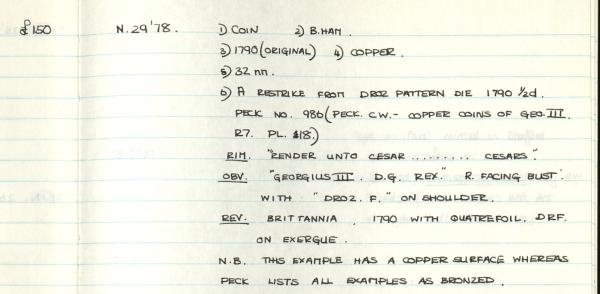 £150 N. 29'78. 1) COIN 2) B.HAM.
3) 1790 (ORIGINAL) 4) COPPER.
5) 32 mm.
6) A RESTRIKE FROM DROZ PATTERN DIE 1790 ½d.
PECK NO. 986 (PECK. C.W. - COPPER COINS OF GEO. III.
R7. PL. $18.)
RIM. "RENDER UNTO CESAR ......... CESARS".
OBV. "GEORGIUS III. D.G. REX." R. FACING BUST'
WITH "DROZ. F." ON SHOULDER.
REV. BRITTANNIA. 1790 WITH QUATREFOIL. D.R.F.
ON EXERGUE.
N.B. THIS EXAMPLE HAS A COPPER SURFACE WHEREAS
PECK LISTS ALL EXAMPLES AS BRONZED.